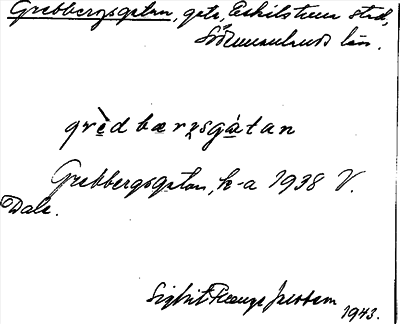 Grebbergsgatan, gata, Eskilstuna stad,
Södermanlands län.
grèdbærgsgátan
Grebbergsgatan, k-a 1938 V.
Dale.
Sigbrit Plænge Jacobson
1943.